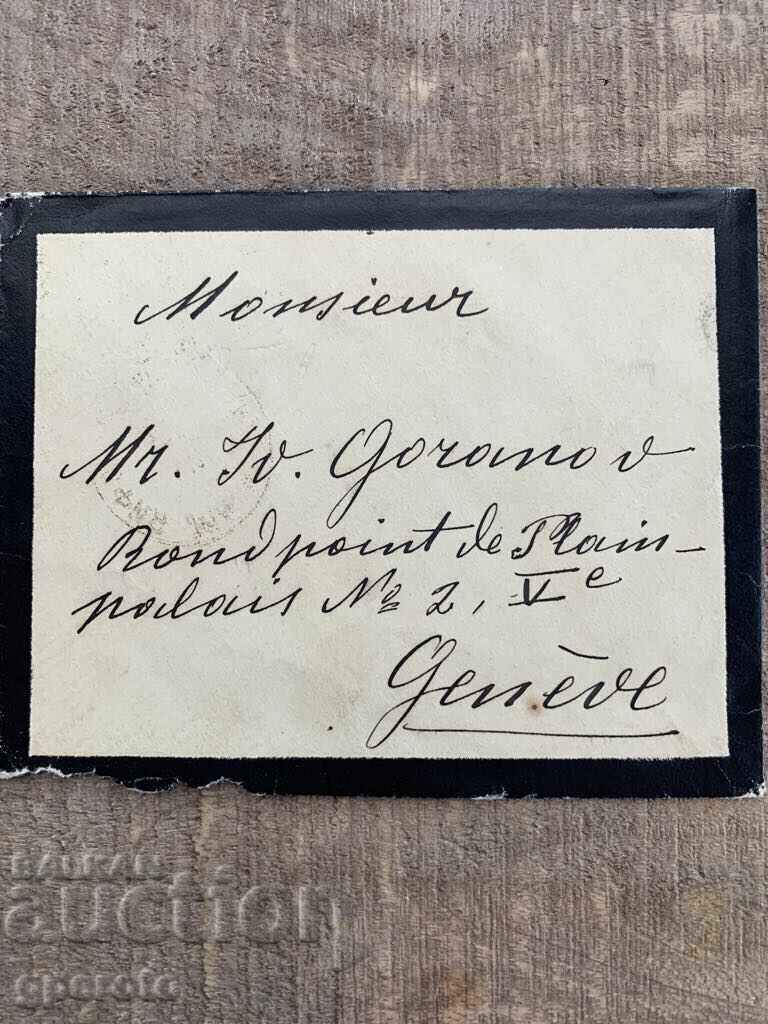 Monsieur
Mr. Iv. Goranov
Rondpoint de Plain-
palais No 2, Ve
Genève
BALKAN
auction
aperoto